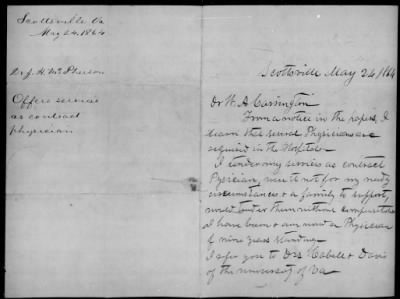 Scottsville Va
May 24. 1864
Dr J. H. McPherson
Offers services
as contract
physician
Scottsville May 24/1864
Dr W. A. Carrington
From a notice in the papers, I
learn that several Physicians are
required in the Hospitals
I tender my services as contract
Pysician, were it not for my needy
circumstances & a family to support,
would tender them without compensation
I have been & am now a Physician
of nine years standing
I refer you to Drs Cabell & Davis
of the university of Va